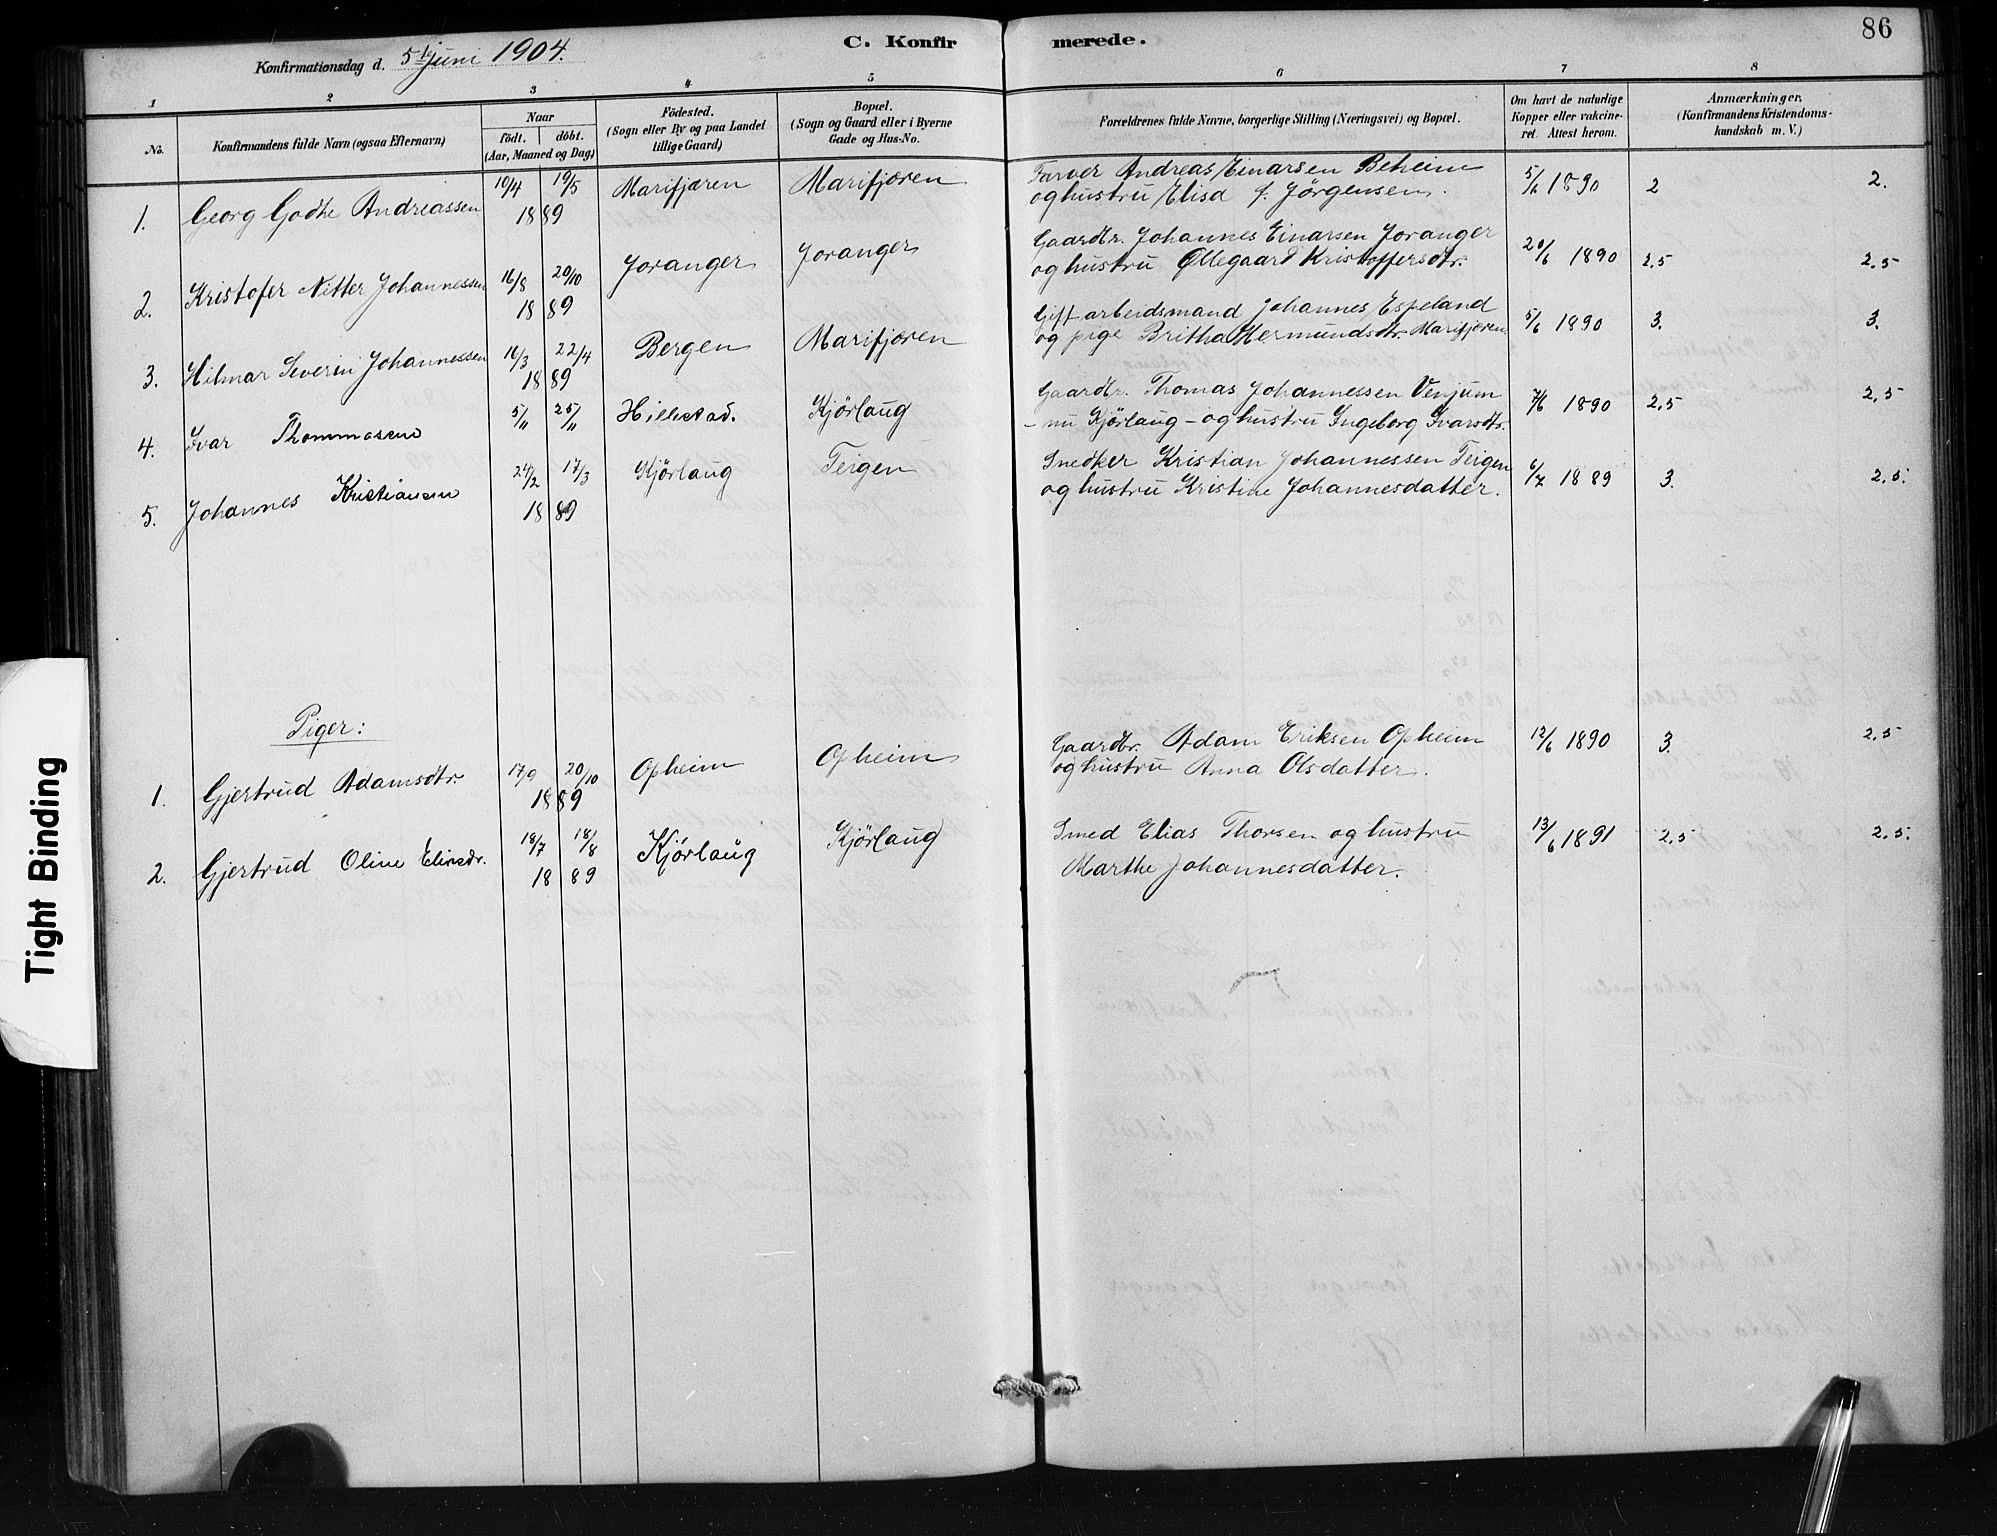 86
Konfirmationsdag d. 5te juni 1904.
C. Konfirmerede.
1 2 3 4 5 6 7 8
No.
Konfirmandens fulde Navn (ogsaa Efternavn)
Naar
födt. döbt.
(Aar, Maaned og Dag)
Födested.
(Sogn eller By og paa Landet
tillige Gaard)
Bopæl.
(Sogn og Gaard eller i Byerne
Gade og Hus-No.
Forældrenes fulde Navne, borgerlige Stilling (Næringsvei) og Bopæl.
Om havt de naturlige
Kopper eller vakcine-
ret. Attest herom.
Anmærkninger.
(Konfirmandens Kristendoms-
kundskab m. V.)
1. Georg Godhe Andreassen 10/4 19/5 1889 Marifjæren Marifjæren Farver Andreas Einarsen Beheim 5/6 1890 2 2.
og hustru Elisa f. Jörgensen.
2. Kristofer Nitter Johannessen 16/8 20/10 1889 Joranger Joranger Gaardbr. Johannes Einarsen Joranger 20/6 1890 2,5 2,5
og hustru Øllegaard Kristoffersdtr.
3. Hilmar Severin Johannessen 16/3 22/4 1889 Bergen Marifjæren Gift arbeidsmand Johannes Espeland 5/6 1890 3. 3.
og pige Britha Hermundsdtr. Marifjæren
4. Ivar Thommasen 5/11 25/11 Hillestad. Kjörlaug Gaardbr. Thomas Johannessen Venjum 7/6 1890 2,5 2,5
- nu Kjörlaug - og hustru Ingeborg Ivarsdtr.
5. Johannes Kristiansen 24/2 17/3 1889 Kjörlaug Teigen Snedker Kristian Johannessen Teigen 6/7 1889 3. 2,5.
og hustru Kristine Johannesdatter.
Piger:
1. Gjertrud Adamsdtr. 17/9 20/10 1889 Opheim Opheim Gaardbr. Adam Eriksen Opheim 12/6 1890 3. 2,5
og hustru Anna Olsdatter.
2. Gjertrud Oline Eliasdr. 18/7 18/8 1889 Kjörlaug Kjörlaug Smed Elias Thorsen og hustru 13/6 1891 2,5 2,5.
Marthe Johannesdatter.
Tight Binding